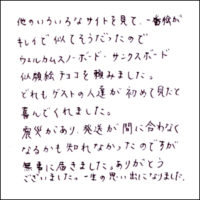 他のいろいろなサイトを見て、一番絵が
キレイで似てそうだったので
ウェルカムスノーボード・サンクスボード
似顔絵チョコを頼みました。
どれもゲストの人達が初めて見たと
喜んでくれました。
震災があり、発送が間に合わなく
なるかも知れなかったのですが
無事に届きました。ありがとう
ございました。一生の思い出になりました。